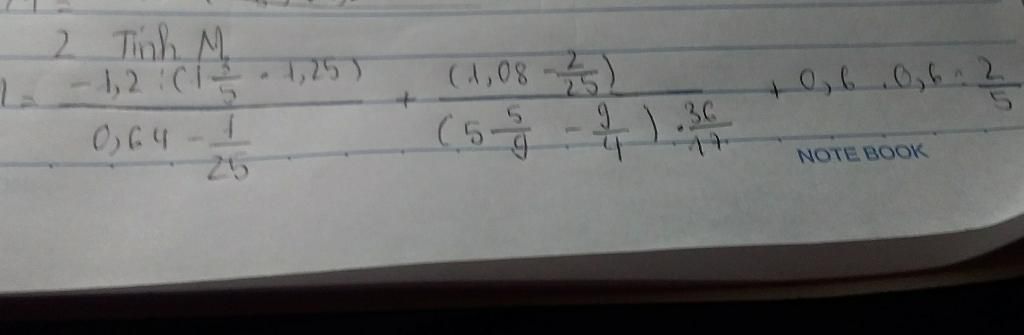 2 Tính M
-1,2 : (1 3/5 . 1,25) / 0,64 - 1/25 + (1,08 - 2/25) / (5 5/9 - 9/4) . 36/17 + 0,6 . 0,6 : 2/5
NOTE BOOK